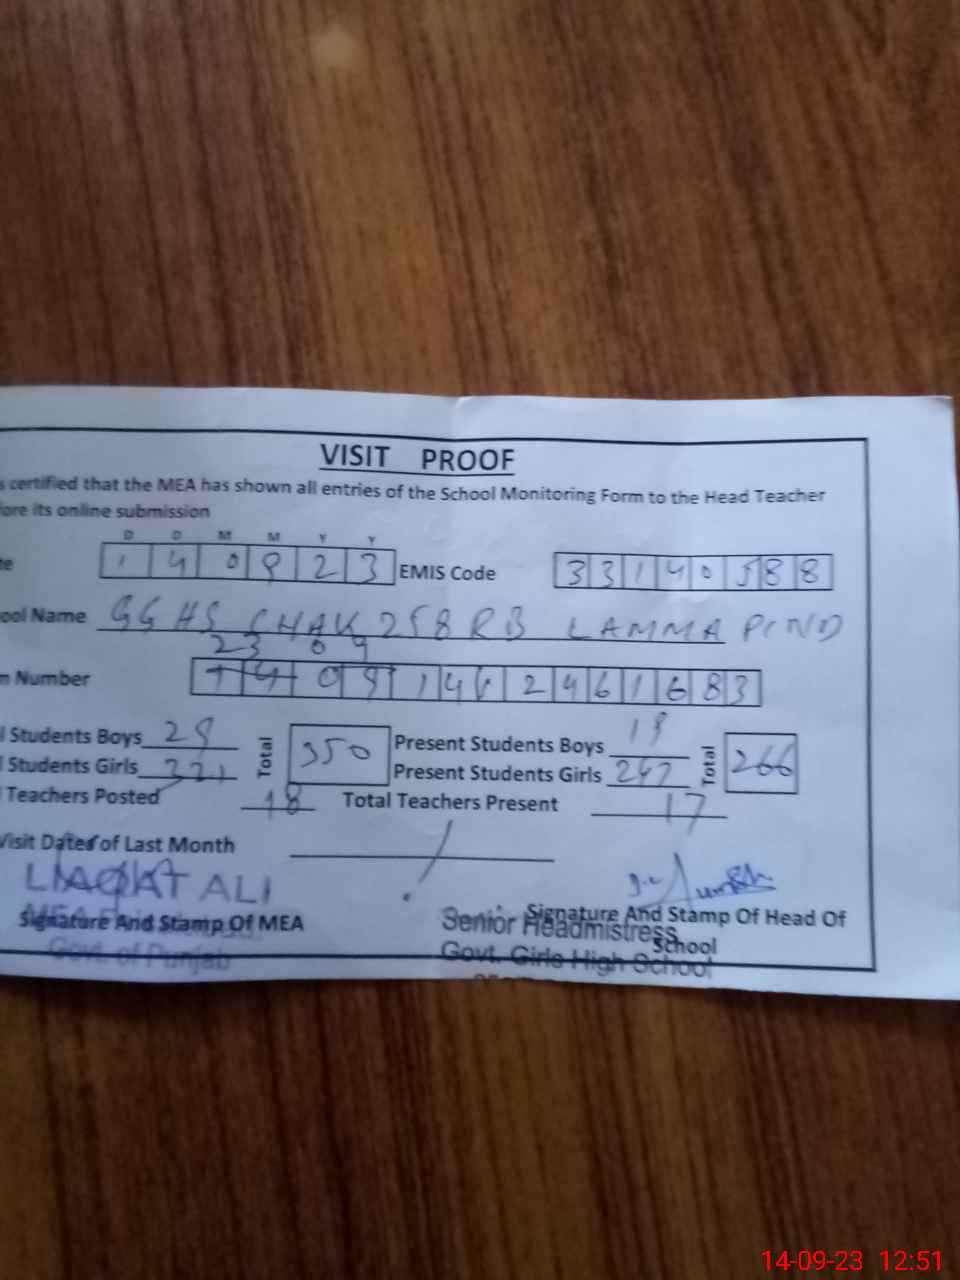 VISIT PROOF
s certified that the MEA has shown all entries of the School Monitoring Form to the Head Teacher
ore its online submission
D D M M Y Y
te 1 4 0 9 2 3 EMIS Code 3 3 1 4 0 5 8 8
ool Name GGHS CHAK 258 RB LAMMA PIND
23 09
m Number 1 4 0 9 1 4 1 2 4 6 1 6 8 3
l Students Boys 29 Total 350 Present Students Boys 19 Total 266
l Students Girls 321 Present Students Girls 247
Teachers Posted 18 Total Teachers Present 17
Visit Dates of Last Month
LIAQAT ALI
Signature And Stamp Of MEA
Govt. of Punjab
Signature And Stamp Of Head Of
School
Senior Headmistress
Govt. Girls High School
14-09-23 12:51